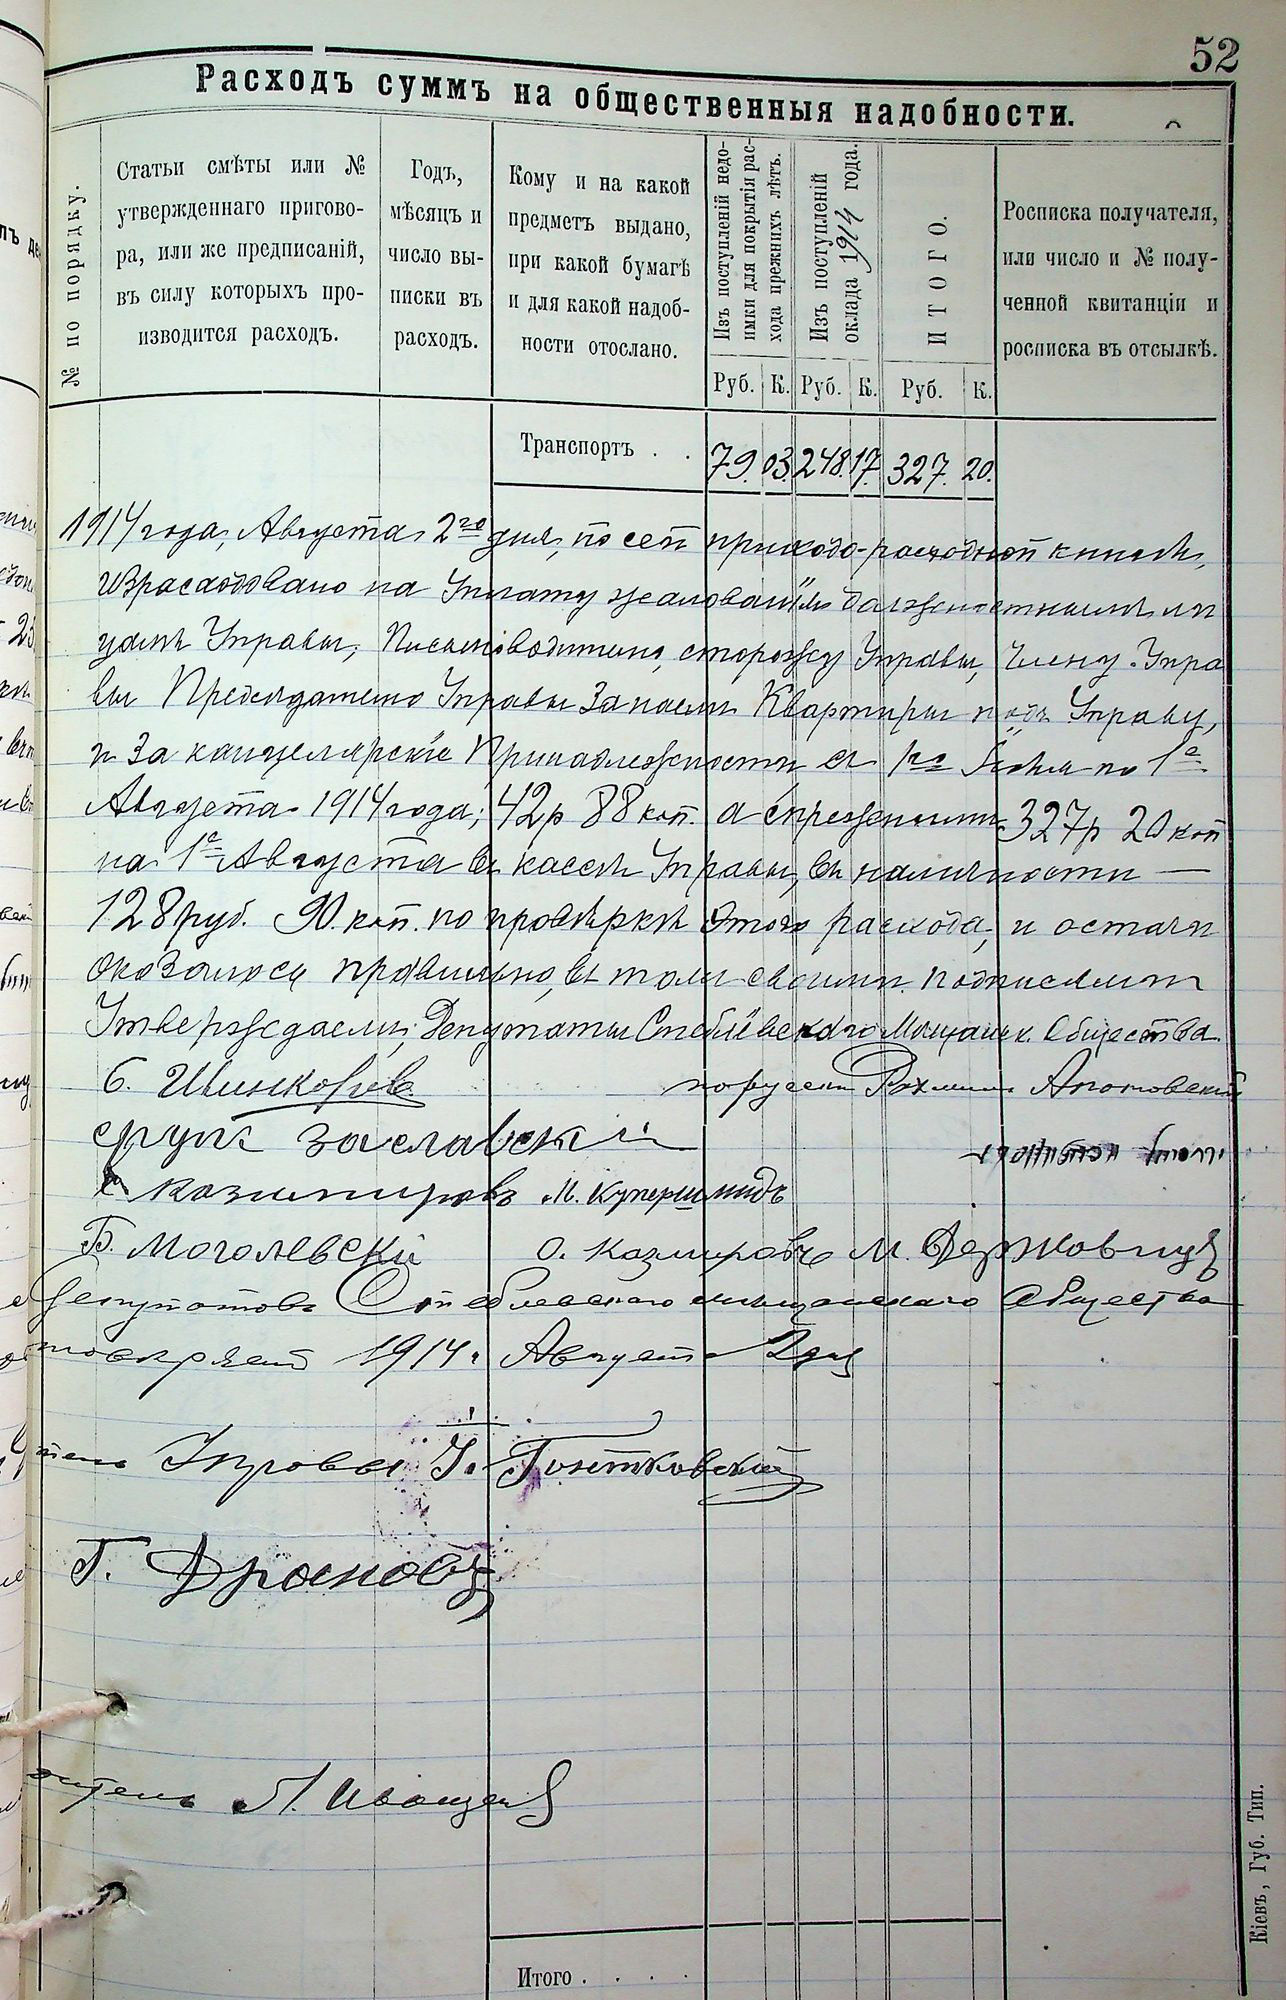 52
Расходъ суммъ на общественныя надобности.
№ по порядку.
Статьи смѣты или №
утвержденнаго пригово-
ра, или же предписаній,
въ силу которыхъ про-
изводится расходъ.
Годъ,
мѣсяцъ и
число вы-
писки въ
расходъ.
Кому и на какой
предметъ выдано,
при какой бумагѣ
и для какой надоб-
ности отослано.
Изъ поступленій недо-
имки для покрытія рас-
хода прежнихъ лѣтъ.
Изъ поступленій
оклада 1914 года.
ИТОГО.
Росписка получателя,
или число и № полу-
ченной квитанціи и
росписка въ отсылкѣ.
Руб. К. Руб. К. Руб. К.
Транспортъ . . 79. 03. 248. 17. 327. 20.
1914 года, Августа 2го дня, по сей приходо-расходной книгѣ,
израсходовано на Уплату жалованія должностнымъ ли
цамъ Управы; Письмоводителю, сторожу Управы, Члену Упра
вы Председателю Управы За наемъ Квартиры подъ Управу,
и За канцелярскіе Принадлежности съ 1го по 1е
Августа 1914 года; 42р 88 коп. а спрежними 327р 20 коп
на 1е Августа въ кассѣ Управы, въ наличности —
128 руб. 90. коп. по провѣркѣ этого расхода, и остачи
оказалось правильно, въ томъ своими подписями
Утверждаемъ; Депутаты Стеблевского Мещанск. Общества
Б. Шинкорев
по русски Рахмиль
заславский
казимировъ М. Купершмидъ
Б. Моголевскі О. Казмировъ М. Беркович
Депутатовъ Стеблевского мещанского Общества
1914. Август 2 дня
Управы Гонтковский
Г. Дранов
А. Иванцев
Итого . . . .
Кіевъ, Губ. Тип.